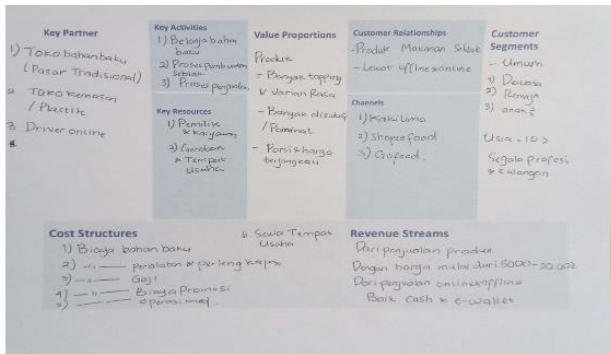 Key Partner
1) Toko bahan baku
(Pasar Tradisional)
2 Toko kemasan
/ Plastik
3 Driver online
Key Activities
1) Belanja bahan
baku
2) Proses pembuatan
Seblak
3) Proses penjualan
Key Resources
1) Pemilik
& karyawan
2) Gerobak
& Tempat
Usaha
Value Proportions
Produk
= Banyak topping
& Varian Rasa
- Banyak disukai
/ Peminat
- Porsi & harga
terjangkau
Customer Relationships
- Produk Makanan Seblak
- Lewat offline & online
Channels
1) Kaki lima
2) Shopee food
3) Gofood.
Customer
Segments
- Umum
1) Dewasa
2) Remaja
3) anak2
Usia = 10 >
Segala profesi
& kalangan
Cost Structures
1) Biaya bahan baku
2) —"— peralatan & perlengkapan
3) —"— Gaji
4) —"— Biaya Promosi
5) operasional
6. Sewa Tempat
Usaha
Revenue Streams
Dari penjualan produk
Dengan harga mulai dari 5000-20.000
Dari penjualan online & offline
Baik cash & e-wallet